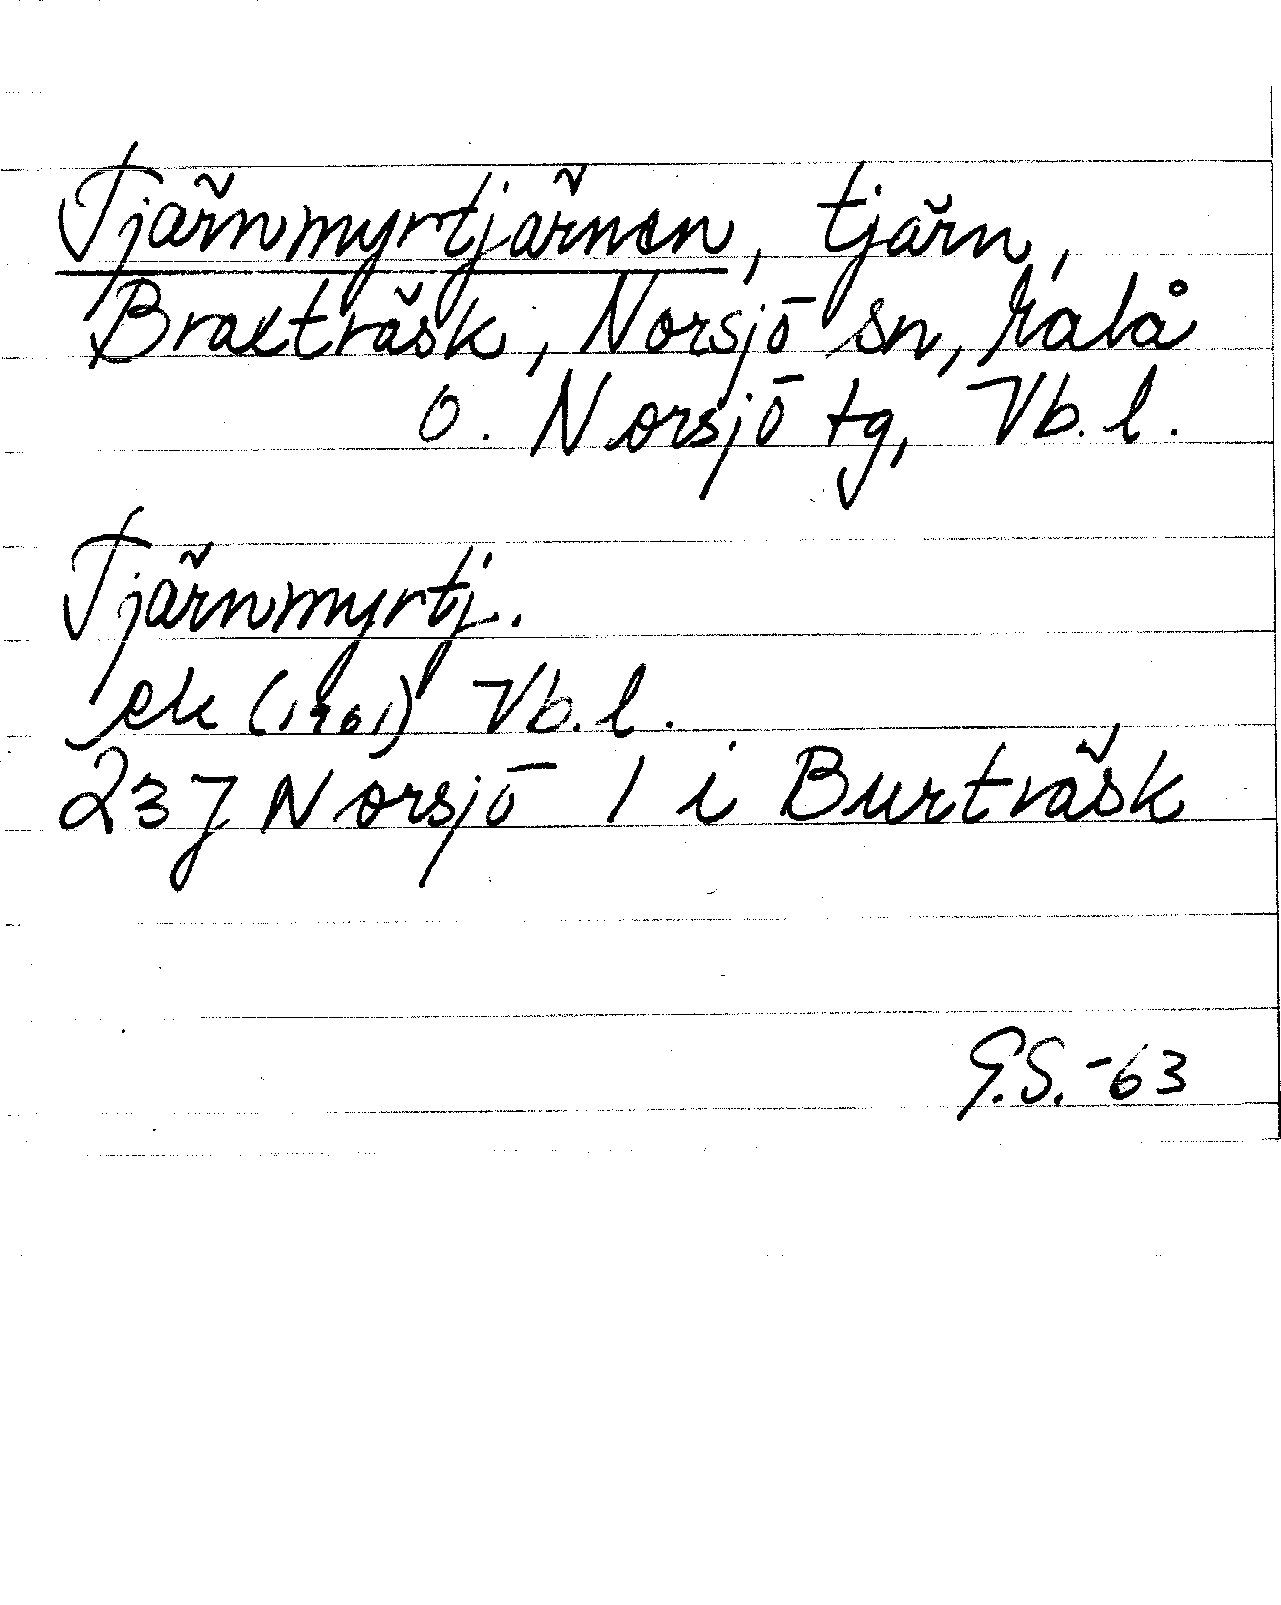 Tjärnmyrtjärnen, tjärn,
Braxträsk, Norsjö sn, Malå
o. Norsjö tg, Vb. l.
Tjärnmyrtj.
ek (1961) Vb. l.
23J Norsjö 1 i Burträsk
G.S.-63